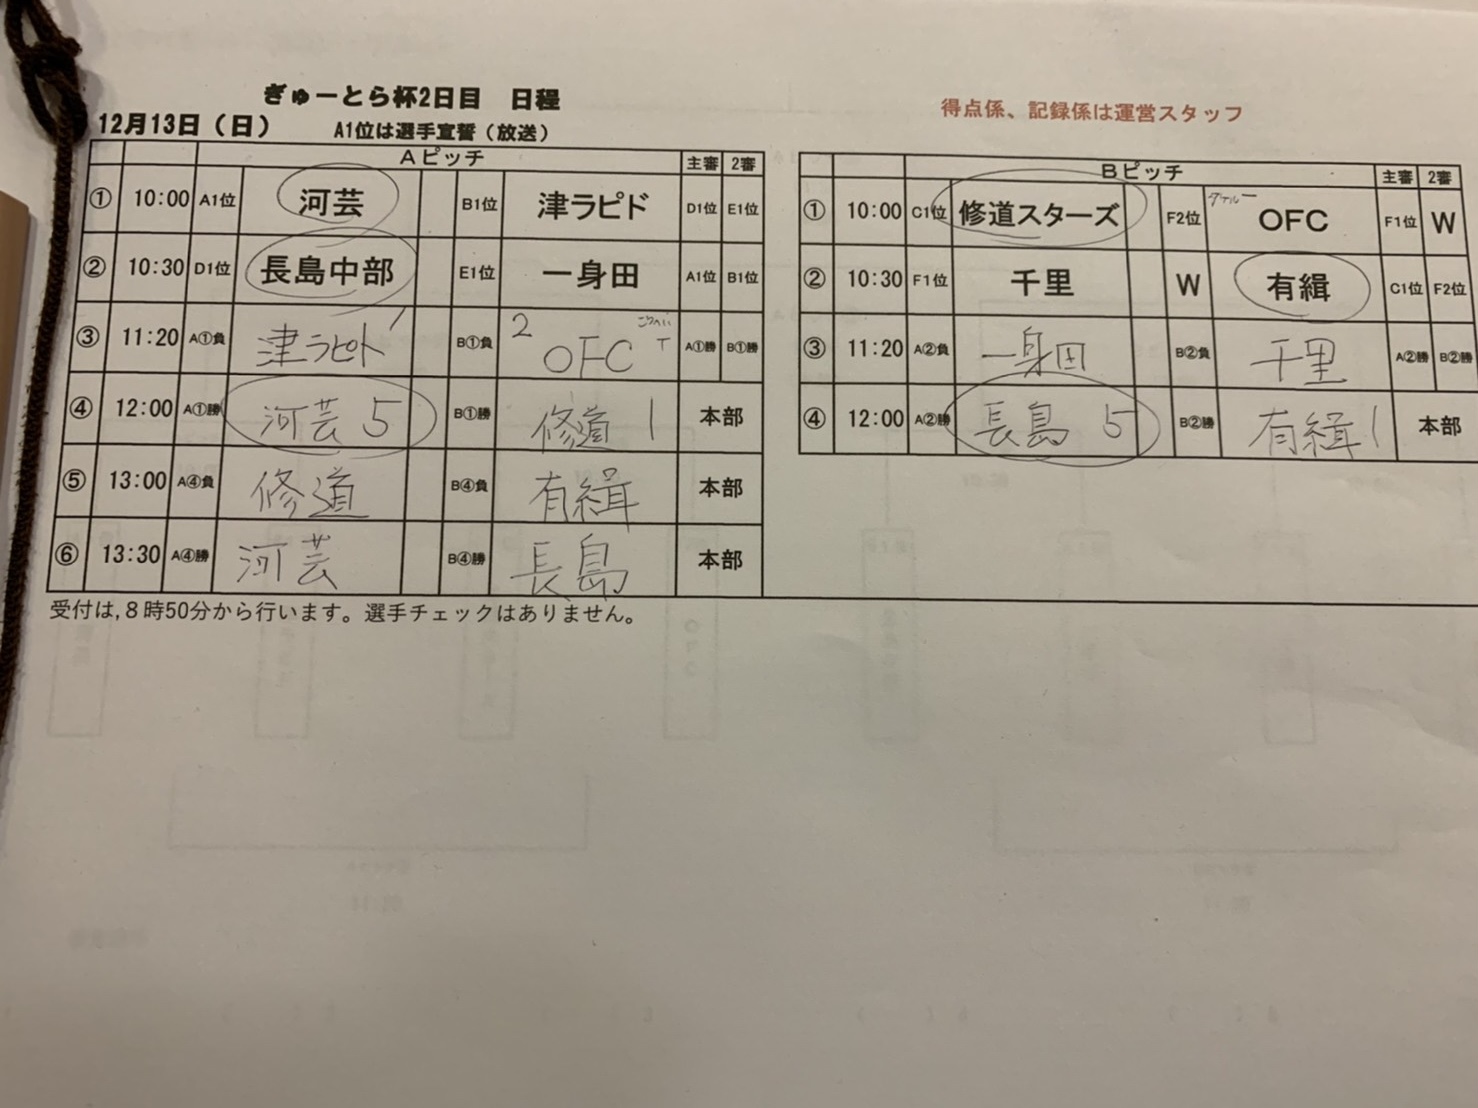 ぎゅーとら杯2日目　日程
12月13日（日）　A1位は選手宣誓（放送）
得点係、記録係は運営スタッフ
Aピッチ 主審 2審
① 10:00 A1位 河芸 B1位 津ラピド D1位 E1位
② 10:30 D1位 長島中部 E1位 一身田 A1位 B1位
③ 11:20 A①負 津ラピド B①負 2 OFC A①勝 B①勝
④ 12:00 A①勝 河芸 5 B①勝 修道 1 本部
⑤ 13:00 A④負 修道 B④負 有緝 本部
⑥ 13:30 A④勝 河芸 B④勝 長島 本部
受付は,８時50分から行います。選手チェックはありません。
Bピッチ 主審 2審
① 10:00 C1位 修道スターズ F2位 OFC F1位 W
② 10:30 F1位 千里 W 有緝 C1位 F2位
③ 11:20 A②負 一身田 B②負 千里 A②勝 B②勝
④ 12:00 A②勝 長島 5 B②勝 有緝 1 本部